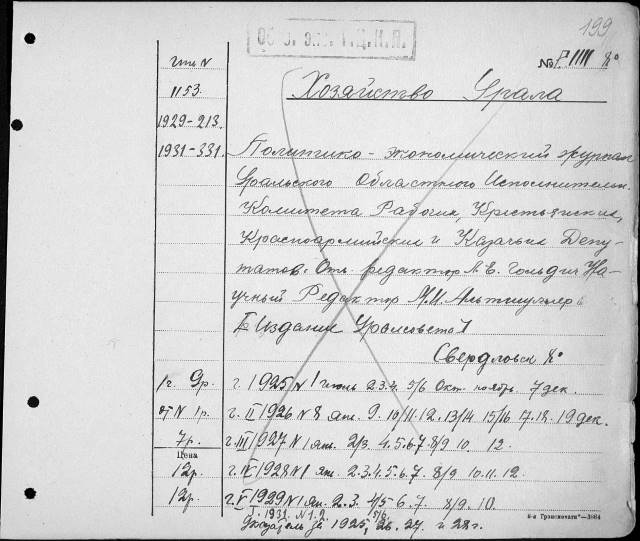 199
Обяз. экз. Г.Ц.К.П.
№ P IIII 8°
Хозяйство Урала
1153
1929-213
1931-331
Политико-экономический журнал
Уральского Областного Исполнительн.
Комитета Рабочих, Крестьянских,
Красноармейских и Казачьих Депу-
татов. Отв. редактор А. Е. Гольдич На-
учный Редактор М. И. Альтшуллер
[Издание Уралсовета]
Свердловск 8°
1г. 9р. г. I 1925 N 1 июнь 2.3.4. 5/6 Окт. ноябрь. 7 дек.
от N 1р. г. II 1926 N 8 янв. 9. 10/11. 12. 13/14 15/16 17. 18. 19 дек.
7р. г. III 1927 N 1 янв. 2/3. 4. 5. 6. 7 8/9 10. 12.
Цена
12р. г. IV 1928 N 1 янв. 2. 3. 4. 5. 6. 7. 8/9 10. 11. 12.
12р. г. V 1929 N 1 ян. 2. 3. 4/5 6. 7. 8/9. 10.
г. 1931. N 1. 2. 5/6.
Указатель за 1925, 26. 27. и 28 г.
"Транспечати"—3884